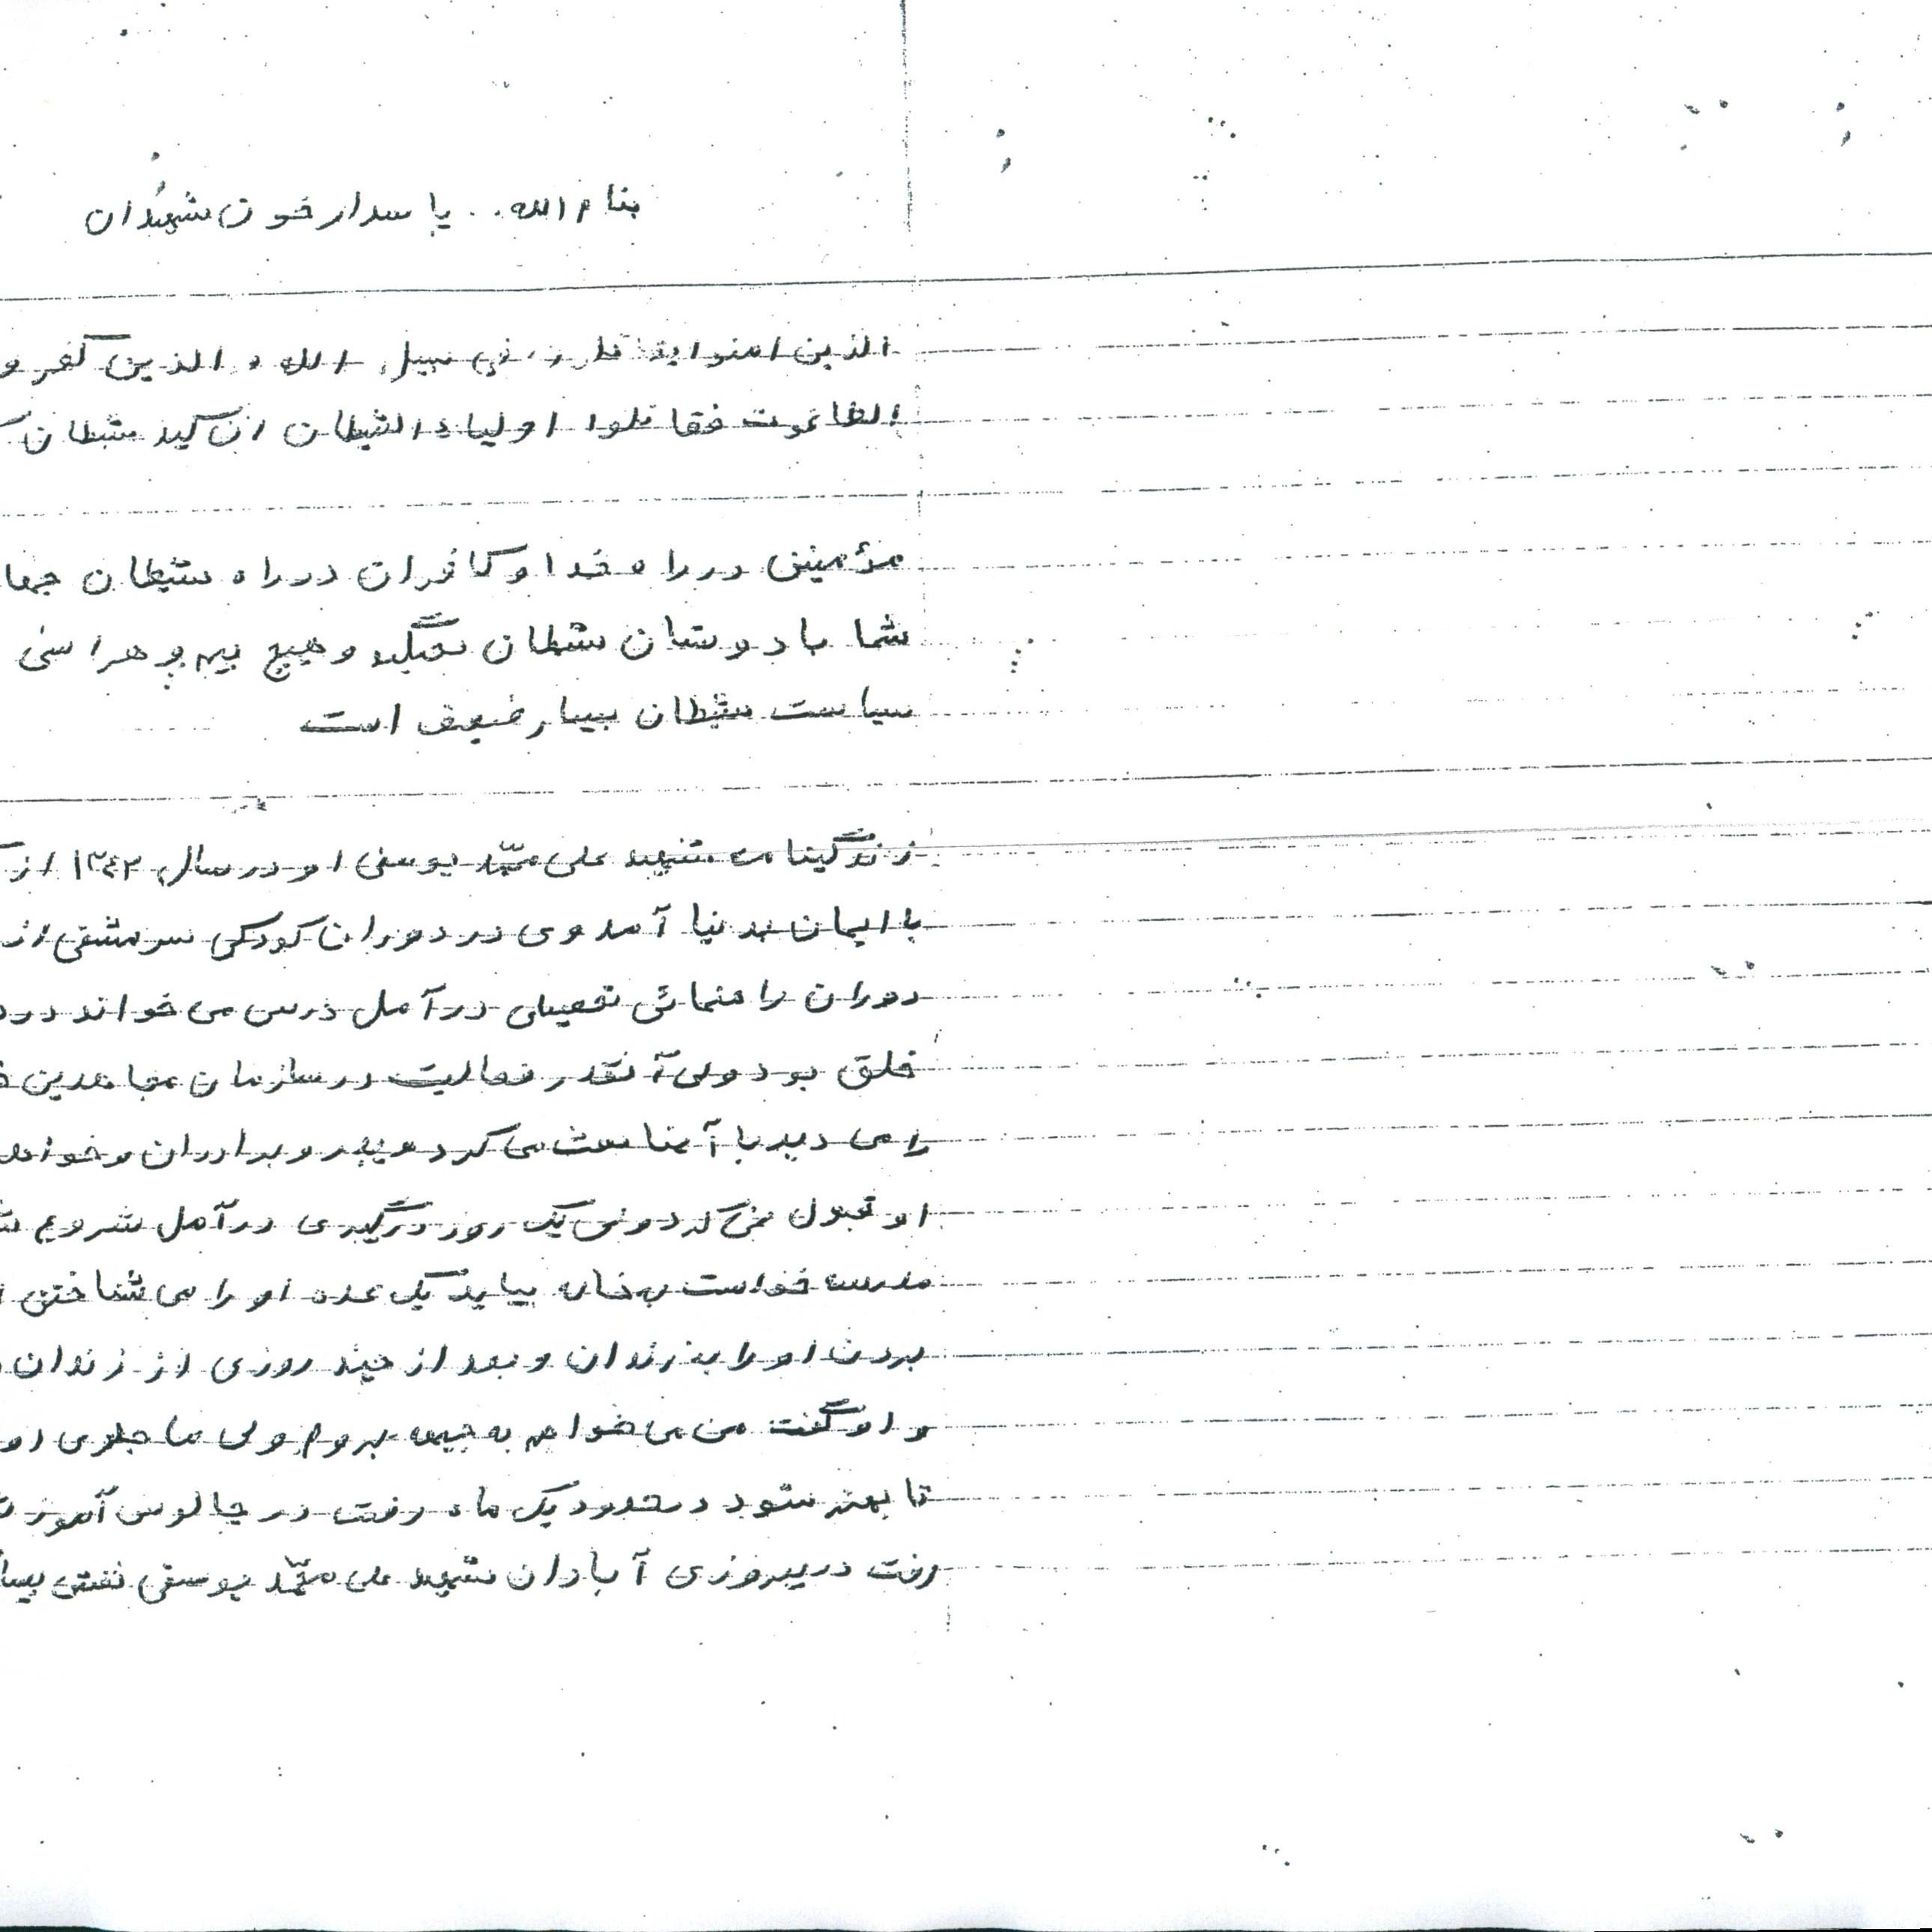 بنام الله.. پاسدار خون شهیدان
الذین امنوا فی سبیل الله و الذین کفرو
الطاغوت فقاتلوا اولیاء الشیطان ان کید شیطان
مؤمنین در راه خدا و کافران در راه شیطان جها
شما با دوستان شیطان بجنگید و هیچ بیم و هراسی
سیاست شیطان بسیار ضعیف است
زندگینامه شهید علی محمّد یوسفی او در سال ۱۳۴۲ از
با ایمان بدنیا آمد وی در دوران کودکی سرمشقی از
دوران راهنمائی تحصیلی در آمل درس می خواند در
خلق بود ولی آنقدر فعالیت در سازمان مجاهدین
را می دید با آنها بحث می کرد و پدر و برادران و خواهر
او قبول نمی کرد ولی یک روز درگیری در آمل شروع
مدرسه خواست به خانه بیاید یک عده او را می شناختن
بردن او را به زندان و بعد از چند روزی از زندان
و او گفت من می خواهم به جبهه بروم ولی ما جلوی او
تا بهتر شود در حدود یک ماه رفت در چالوس آموز
رفت در پیروزی آبادان شهید علی محمّد یوسفی نقش بسیا